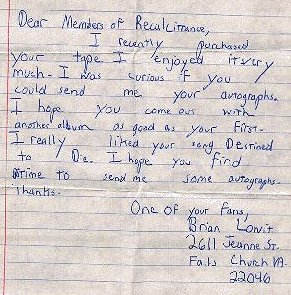 Dear Members of Recalcitrance,
I recently purchased
your tape I enjoyed it very
much. I was curious if you
could send me your autographs.
I hope you come out with
another album as good as your first.
I really liked your song Destined
to Die. I hope you find
time to send me some autographs.
Thanks.
One of your fans,
Brian
2611 Jeanne St.
Falls Church VA.
22046